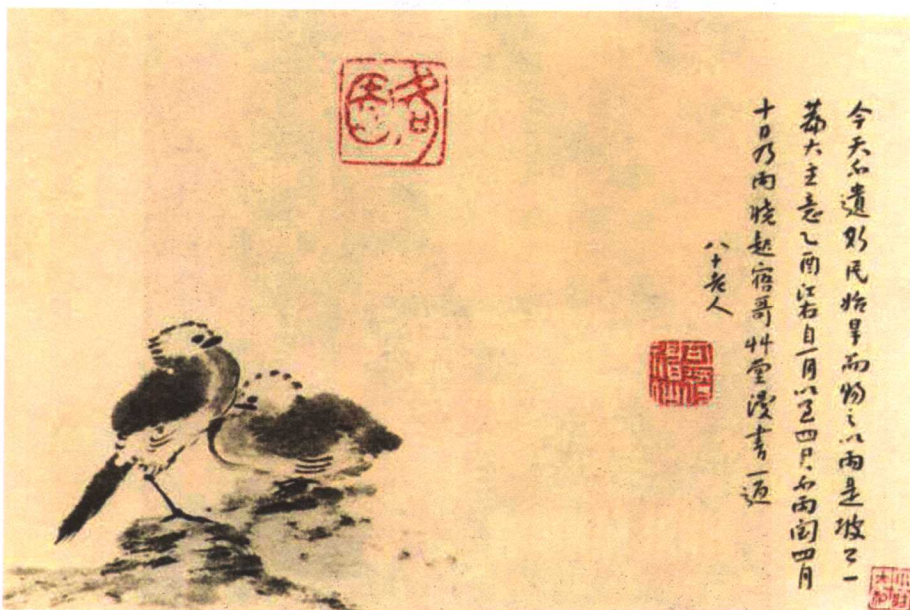 今天不遺斯民始旱而賜之以雨是坡公一
篇大主意乙酉江右自一月以至四月不雨閏四月
十日乃雨曉起寤哥艸堂漫書一過
八十老人
可得神仙